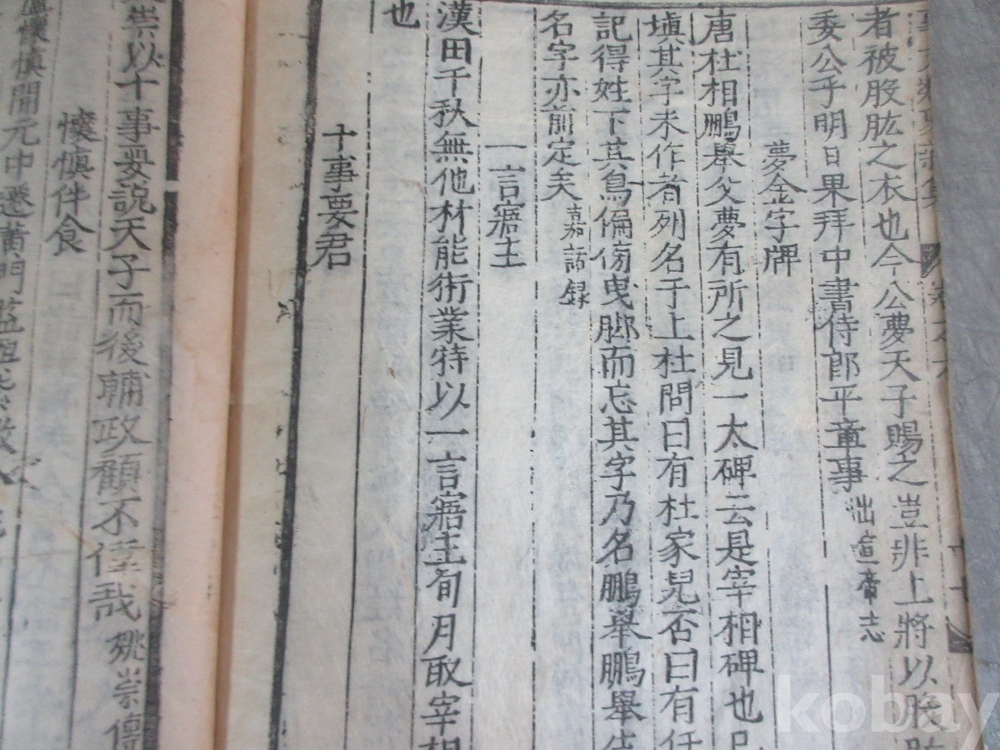 者被股肱之衣也今公夢天子賜之豈非上將以股肱
委公乎明日果拜中書侍郎平章事出宣帝志
夢金字牌
唐杜相鵬舉父夢有所之見一大碑云是宰相碑也
填其字未作者列名于上杜問曰有杜家兒否曰有任
記得姓下其鳥偏傍曳脚而忘其字乃名鵬舉鵬舉生
名字亦前定矣嘉話錄
一言寤主
漢田千秋無他材能術業特以一言寤主旬月取宰相
也
十事要君
崇以十事要說天子而後輔政顧不偉哉姚崇傳
懷慎伴食
盧懷慎開元中遷黃門監
kobay